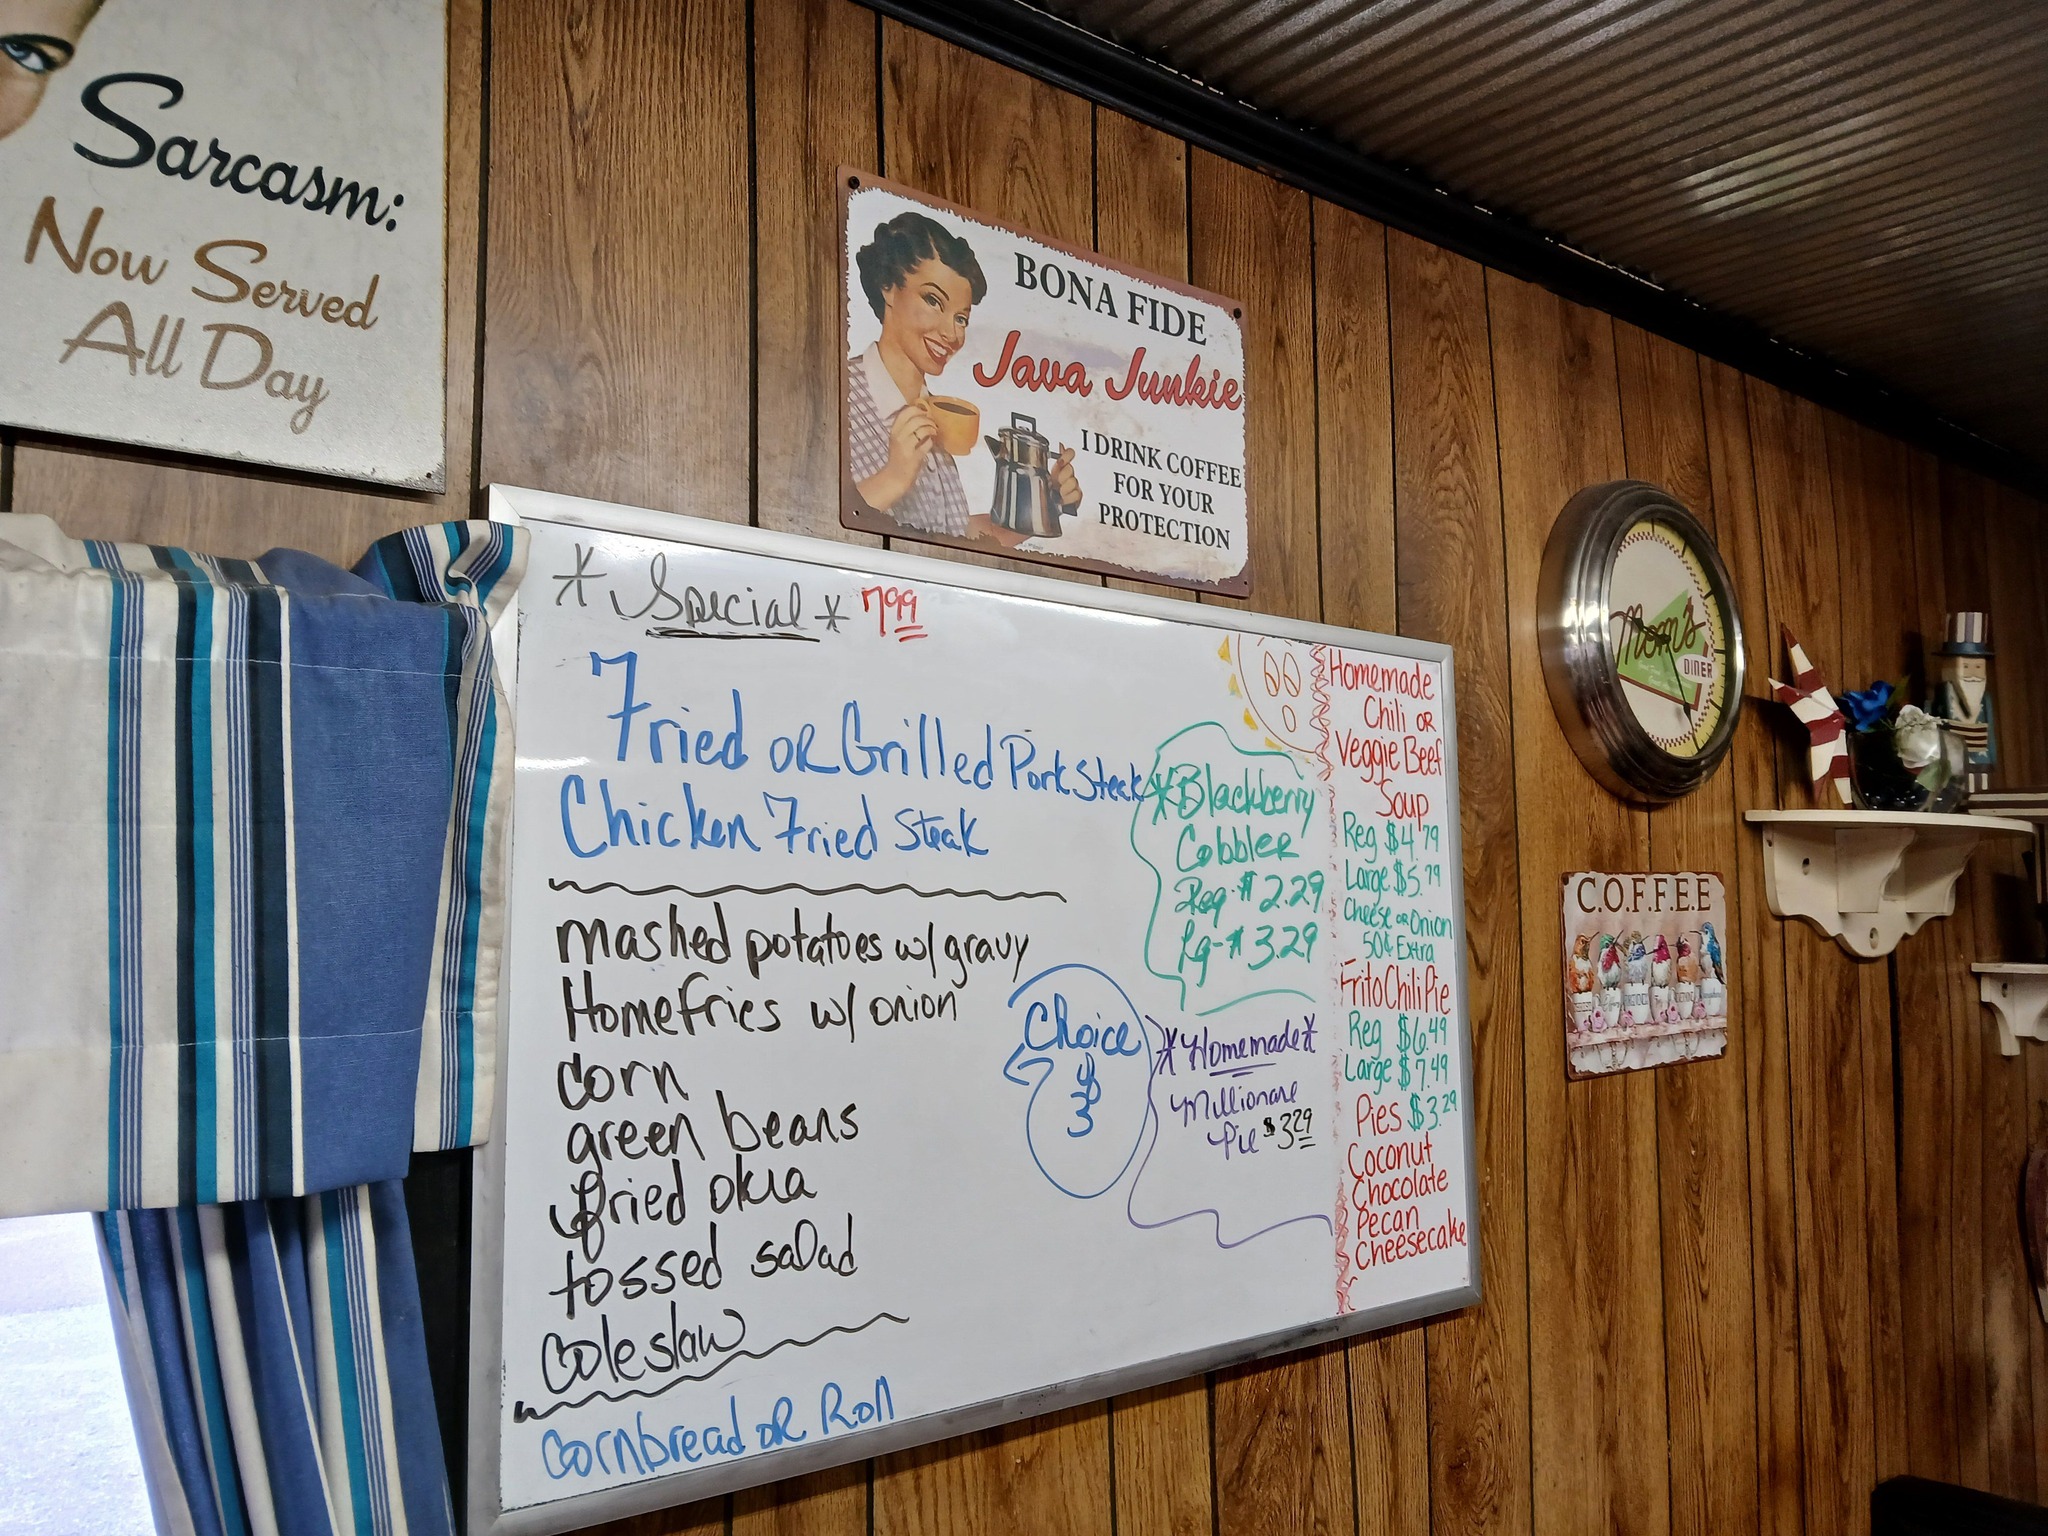 Sarcasm:
Now Served
All Day
BONA FIDE
Java Junkie
I DRINK COFFEE
FOR YOUR
PROTECTION
*Special* 7.99
Fried OR Grilled Pork Steak
Chicken Fried Steak
mashed potatoes w/ gravy
Homefries w/ onion
corn
green beans
fried okra
tossed salad
Coleslaw
cornbread OR Roll
Choice
of
3
*Blackberry
Cobbler
Reg-$2.29
Lg-$3.29
*Homemade*
Millionare
Pie $3.29
Homemade
Chili OR
Veggie Beef
Soup
Reg $4.79
Large $5.79
Cheese OR Onion
50¢ Extra
Frito Chili Pie
Reg $6.49
Large $7.49
Pies $3.29
Coconut
Chocolate
Pecan
Cheesecake
Mom's
DINER
C.O.F.F.E.E